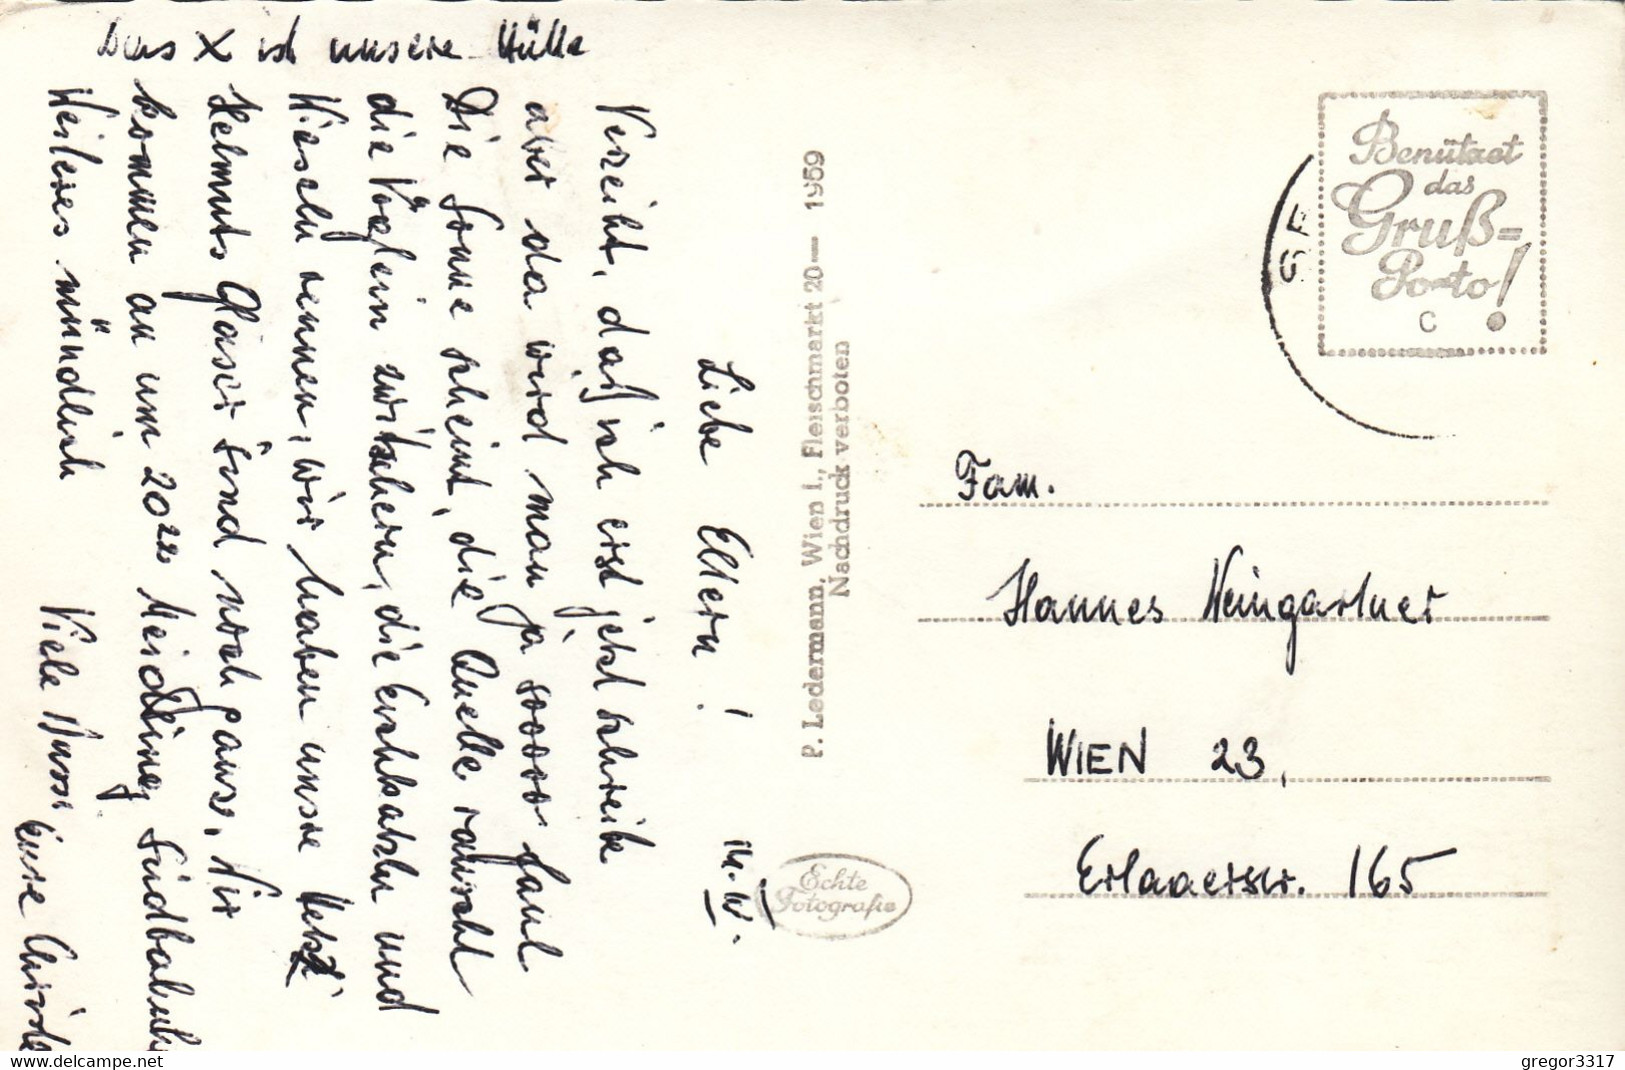 Das X ist unsere Hütte
14. IV.
Liebe Eltern!
Verzeiht, daß ich erst jetzt schreibe
aber da wird man ja soooo faul
Die Sonne scheint, die Quelle rauscht
die Vöglein zwitschern, die Eichkatzln und
Wieseln rennen, wir haben unsre
Helmuts Gläser sind noch ganz. Wir
kommen an um 20 Meidling Südbahnh
Weiteres mündlich Viele Bussi Eure Christl
P. Ledermann, Wien I., Fleischmarkt 20 — 1959
Nachdruck verboten
Echte
Fotografie
Benützet
das
Gruß=
Porto!
C
Fam.
Hannes Weingartner
WIEN 23,
Erlaaerstr. 165
delcampe.net
gregor3317